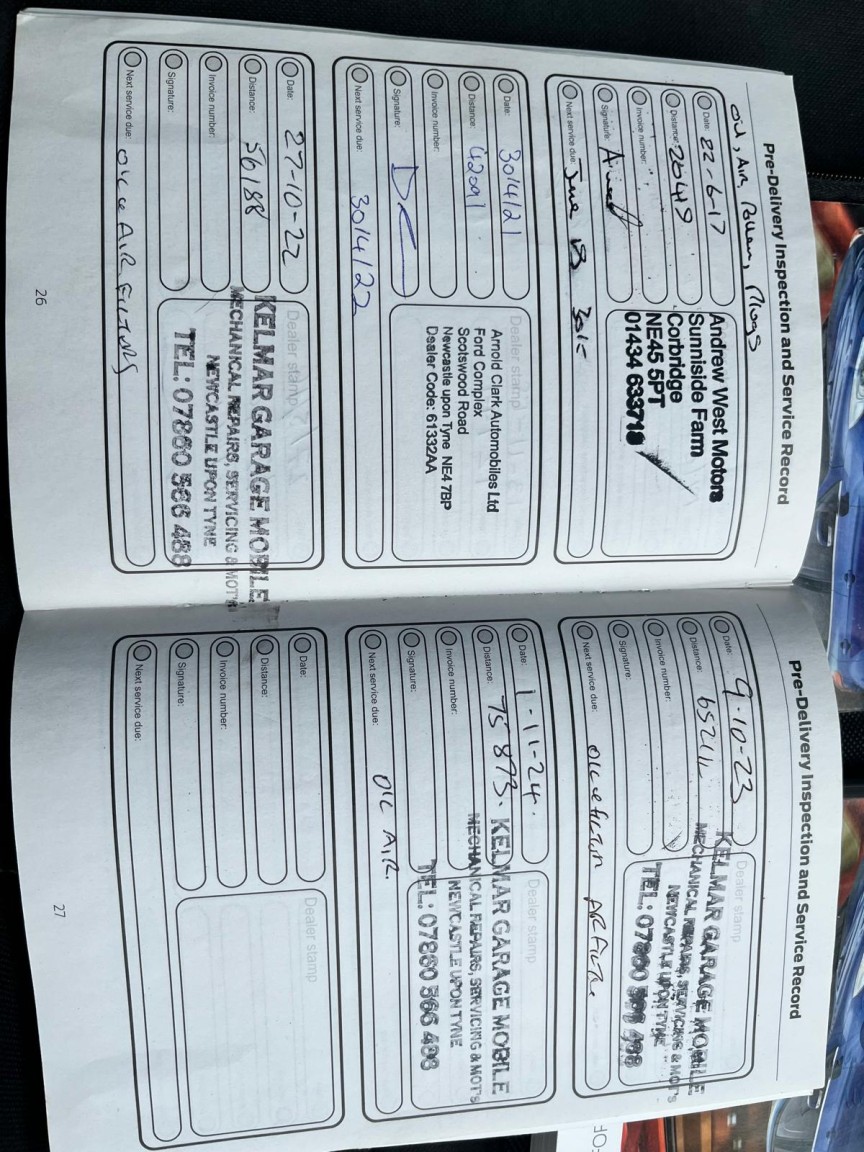 Pre-Delivery Inspection and Service Record
Oil, Air, Pollen, Plugs
Date: 22-6-17
Distance: 20449
Invoice number:
Signature:
Next service due: June 18
Andrew West Motors
Sunniside Farm
Corbridge
NE45 5PT
01434 633718
Date: 30/4/21
Distance: 42091
Invoice number:
Signature:
Next service due: 30/4/22
Dealer stamp
Arnold Clark Automobiles Ltd
Ford Complex
Scotswood Road
Newcastle upon Tyne NE4 7BP
Dealer Code: 61332AA
Date: 27-10-22
Distance: 56188
Invoice number:
Signature:
Next service due: OIL & AIR FILTERS
Dealer stamp
KELMAR GARAGE MOBILE
MECHANICAL REPAIRS, SERVICING & MOT'S
NEWCASTLE UPON TYNE
TEL: 07860 566 488
26
Pre-Delivery Inspection and Service Record
Date: 9-10-23
Distance:
Invoice number:
Signature:
Next service due: OIL & FILTER AIR FILTER
Dealer stamp
KELMAR GARAGE MOBILE
MECHANICAL REPAIRS, SERVICING & MOT'S
NEWCASTLE UPON TYNE
TEL: 07860
Date: 1-11-24.
Distance: 75873.
Invoice number:
Signature:
Next service due: OIL AIR.
Dealer stamp
KELMAR GARAGE MOBILE
MECHANICAL REPAIRS, SERVICING & MOT'S
NEWCASTLE UPON TYNE
TEL: 07860 566 488
Date:
Distance:
Invoice number:
Signature:
Next service due:
Dealer stamp
27